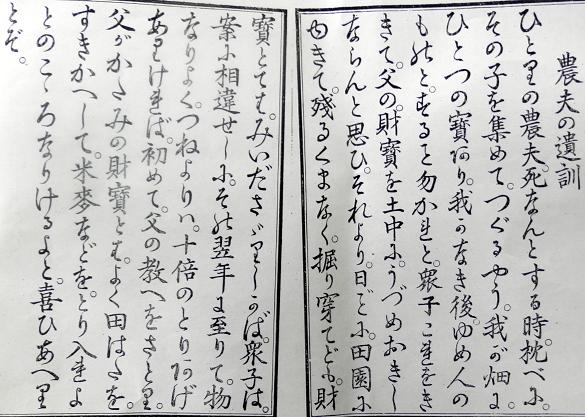 農夫の遺訓
ひとりの農夫死なんとする時。枕べに。
その子を集めて。つぐるやう。我が畑に。
ひとつの寳あり。我がなき後。ゆめ人の
ものと。すること勿かれと。衆子これをき
きて。父の。財寳を土中に。うづめおきし
ならんと思ひ。それより。日ごに。田園に
ゆきて。殘るくまなく。掘り穿てども。財
寳とては。みいださゞりしかば。衆子は。
案に相違せしに。その翌年に至りて。物
なりよく。つねよりハ。十倍のとりあげ
ありければ。初めて。父の教へをさとり。
父がかたみの財寳とは。よく田はたを。
すきかへして。米麥などを。とり入れよ
とのこゝろなりけるよと。喜ひあへり
とぞ。